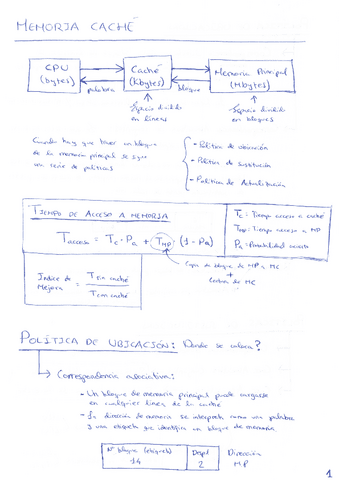 MEMORIA CACHÉ
CPU
(bytes)
Caché
(Kbytes)
Memoria Principal
(Mbytes)
palabra
bloque
Espacio dividido
en líneas
Espacio dividido
en bloques
Cuando hay que traer un bloque
de la memoria principal se sigue
una serie de políticas
- Política de ubicación
- Política de sustitución
- Política de Actualización
TIEMPO DE ACCESO A MEMORIA
Tacceso = Tc · Pa + TMP (1 - Pa)
Tc = Tiempo acceso a caché
TMP = Tiempo acceso a MP
Pa = Probabilidad acierto
Copia de bloque de MP a MC
+
Lectura de MC
Índice de
Mejora =
T sin caché
T con caché
POLÍTICA DE UBICACIÓN: Donde se ubica?
Correspondencia asociativa:
- Un bloque de memoria principal puede cargarse
en cualquier línea de la caché
- La dirección de memoria se interpreta como una palabra
y una etiqueta que identifica un bloque de memoria.
Nº bloque (etiqueta)
14
Despl
2
Dirección
MP
1